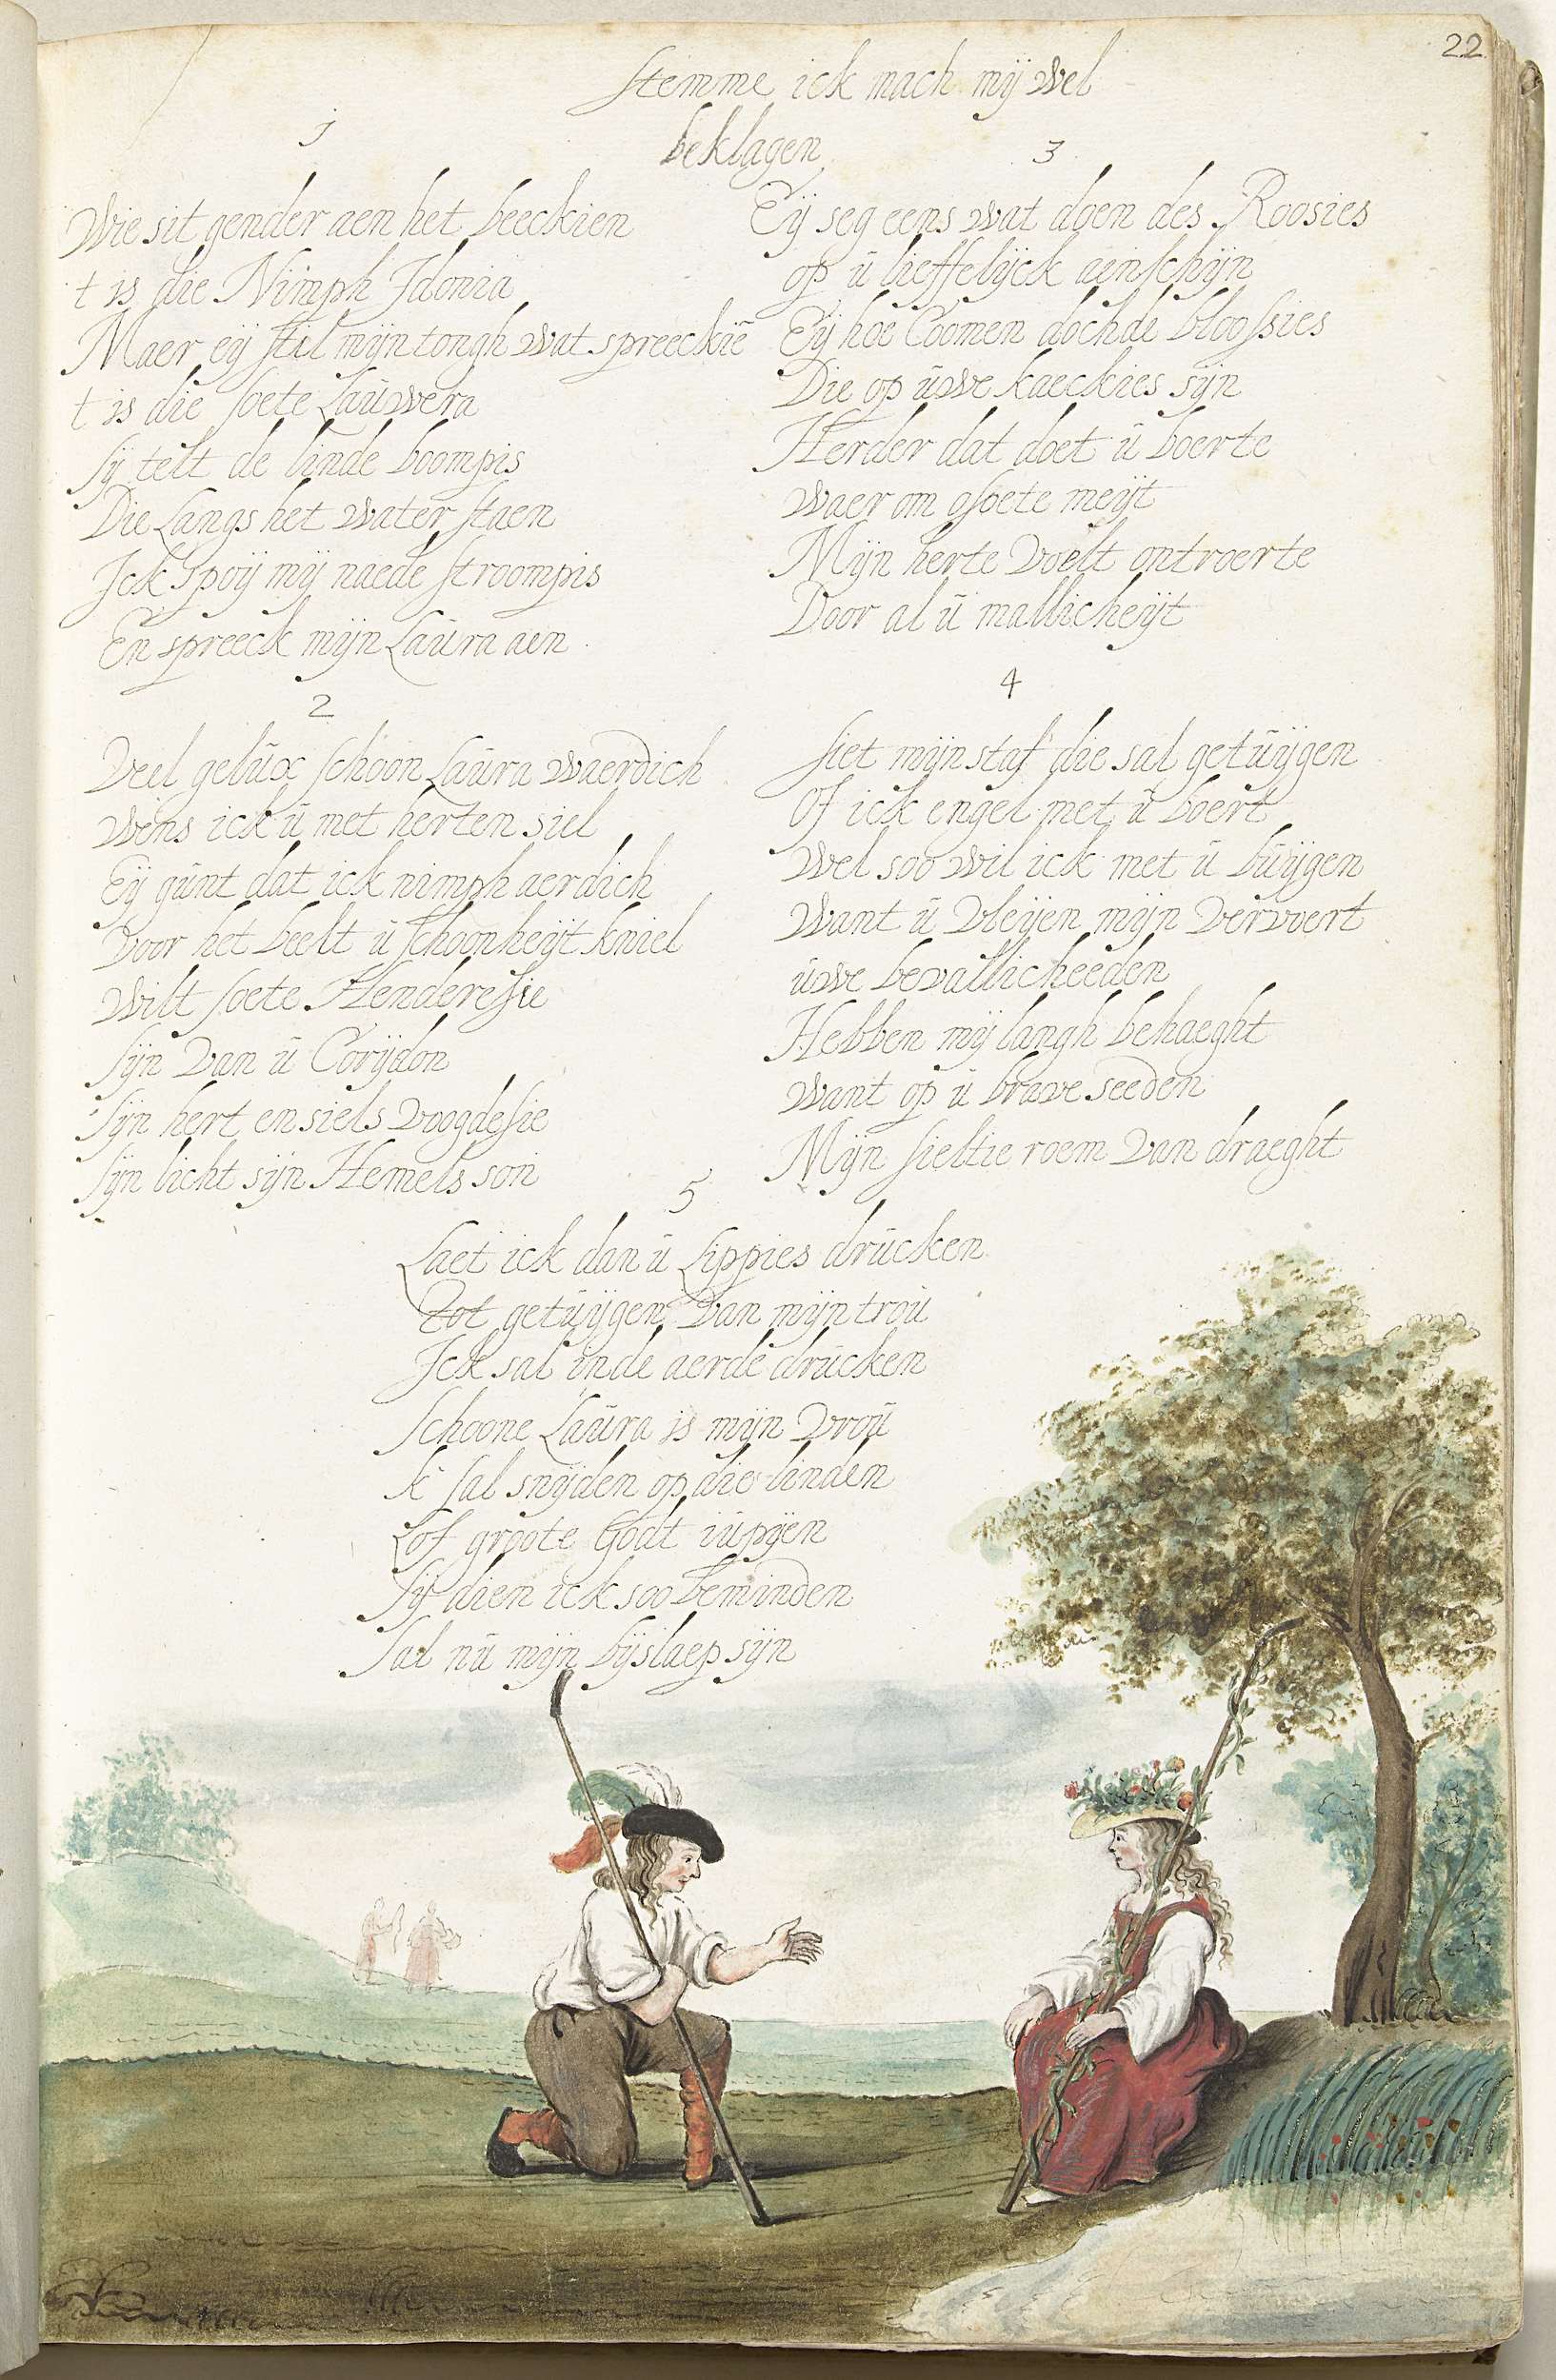 22
Stemme ick mach mij wel
beklagen
1
Wie sit gender aen het beeckien
t is die Nimph Idonia
Maer eij stil mijn tongh wat spreeckiē
t is die soete Lauwera
sij telt de linde boompis
Die Langs het water staen
Ick spoij mij naede stroompis
En spreeck mijn Laura aen
2
Veel gelux schoon Laura waerdich
wens ick u met herten siel
Eij gunt dat ick nimph aerdich
voor het beelt u schoonheijt kniel
wilt soete Henderesie
sijn van u Corijdon
sijn hert en siels voogdesie
sijn licht sijn Hemels son
3
Eij seg eens wat doen des Roosies
op u lieffelijck ainschijn
Eij hoe Coomen doch de bloossies
Die op uwe kaeckies sijn
Herder dat doet u boerte
waer om osoete meijt
Mijn herte voelt ontroerte
Door al u mallicheijt
4
siet mijn staf die sal getuijgen
Of ick engel met u boert
wel soo wil ick met u buijgen
want u vleijen mijn vervoert
uwe bevallicheeden
Hebben mij langh behaeght
want op u brave seeden
Mijn sieltie roem van draeght
5
Laet ick dan u Lippies drucken
Tot getuijgen van mijn trou
Ick sal inde aerde drucken
Schoone Laura is mijn vrou
k sal snijden op die linden
Lof groote Godt iupijen
sij dien ick soo beminden
sal nu mijn bijslaep sijn